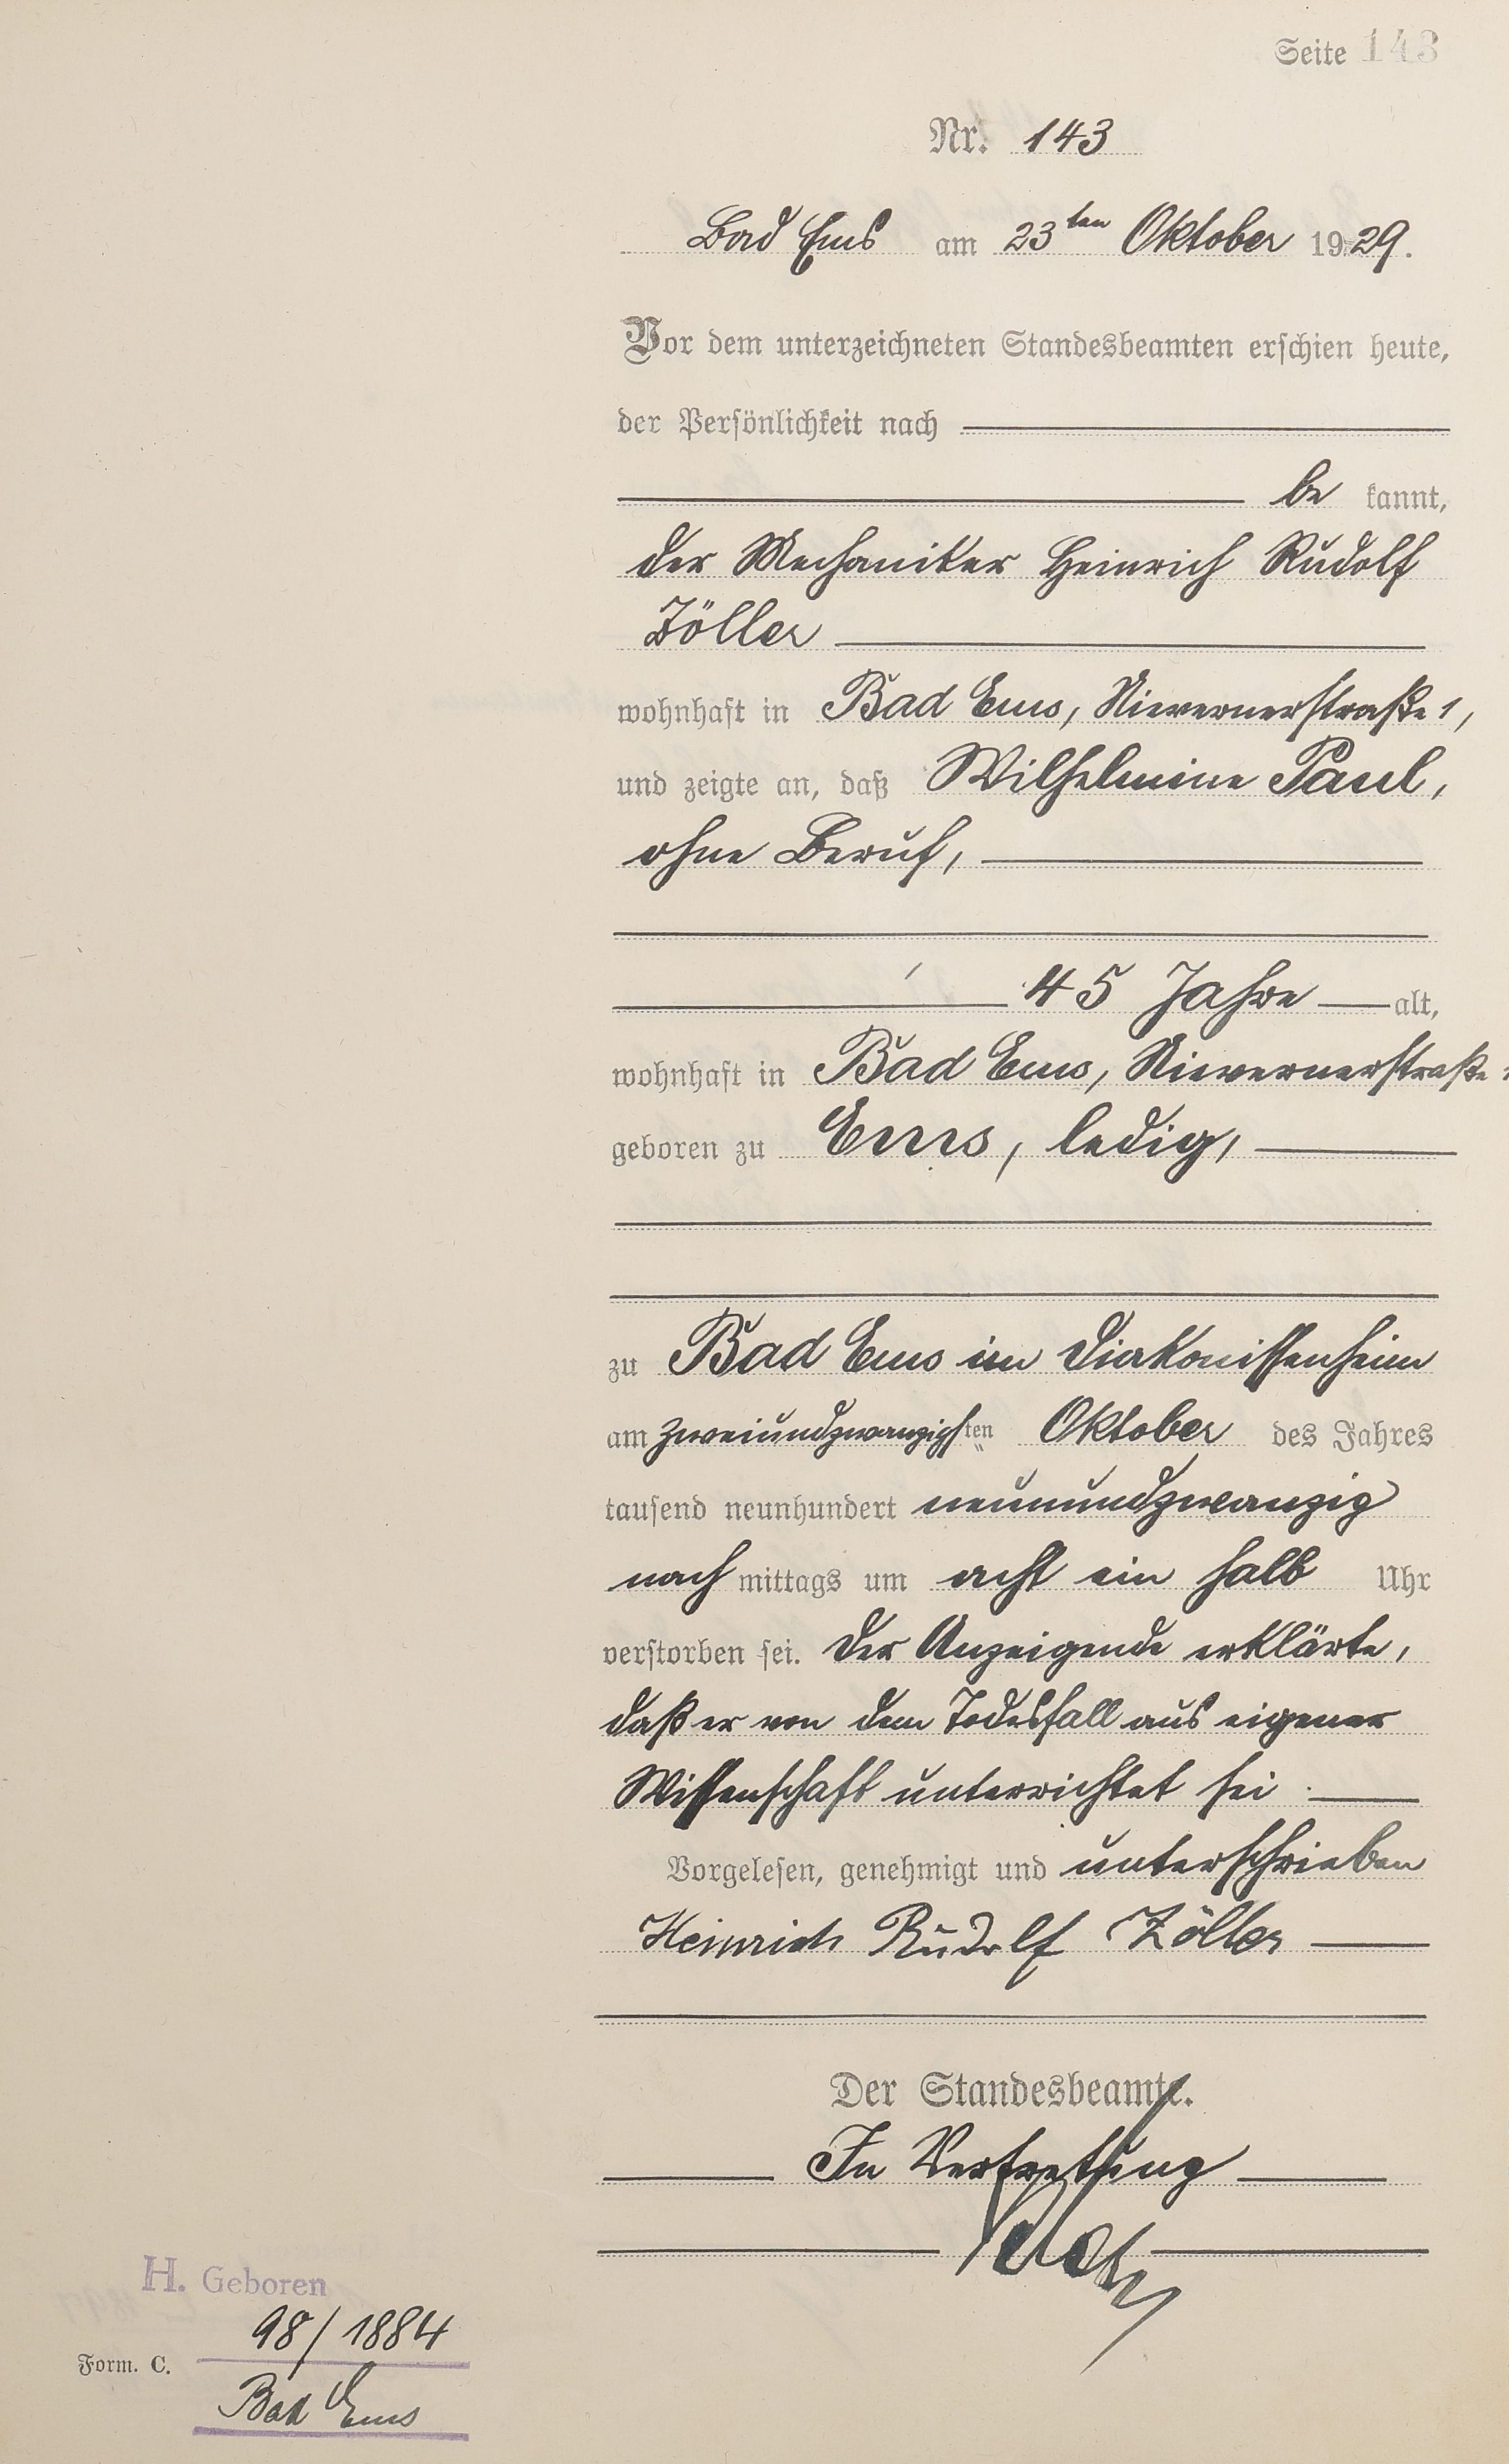 Seite 143
Nr. 143
Bad Ems am 23ten Oktober 1929.
Vor dem unterzeichneten Standesbeamten erschien heute,
der Persönlichkeit nach
be kannt,
der Mechaniker Heinrich Rudolf
Zöller
wohnhaft in Bad Ems, Nievernerstraße 1,
und zeigte an, daß Wilhelmine Paul,
ohne Beruf,
45 Jahre alt,
wohnhaft in Bad Ems, Nievernerstraße
geboren zu Ems, ledig,
zu Bad Ems im Diakonissenheim
am zweiundzwanzigsten Oktober des Jahres
tausend neunhundert neunundzwanzig
nach mittags um acht ein halb Uhr
verstorben sei. Der Anzeigende erklärte,
daß er von dem Todesfall aus eigener
Wissenschaft unterrichtet sei.
Vorgelesen, genehmigt und unterschrieben
Heinrich Rudolf Zöller
Der Standesbeamte.
In Vertretung
H. Geboren
98/1884
Form. C.
Bad Ems